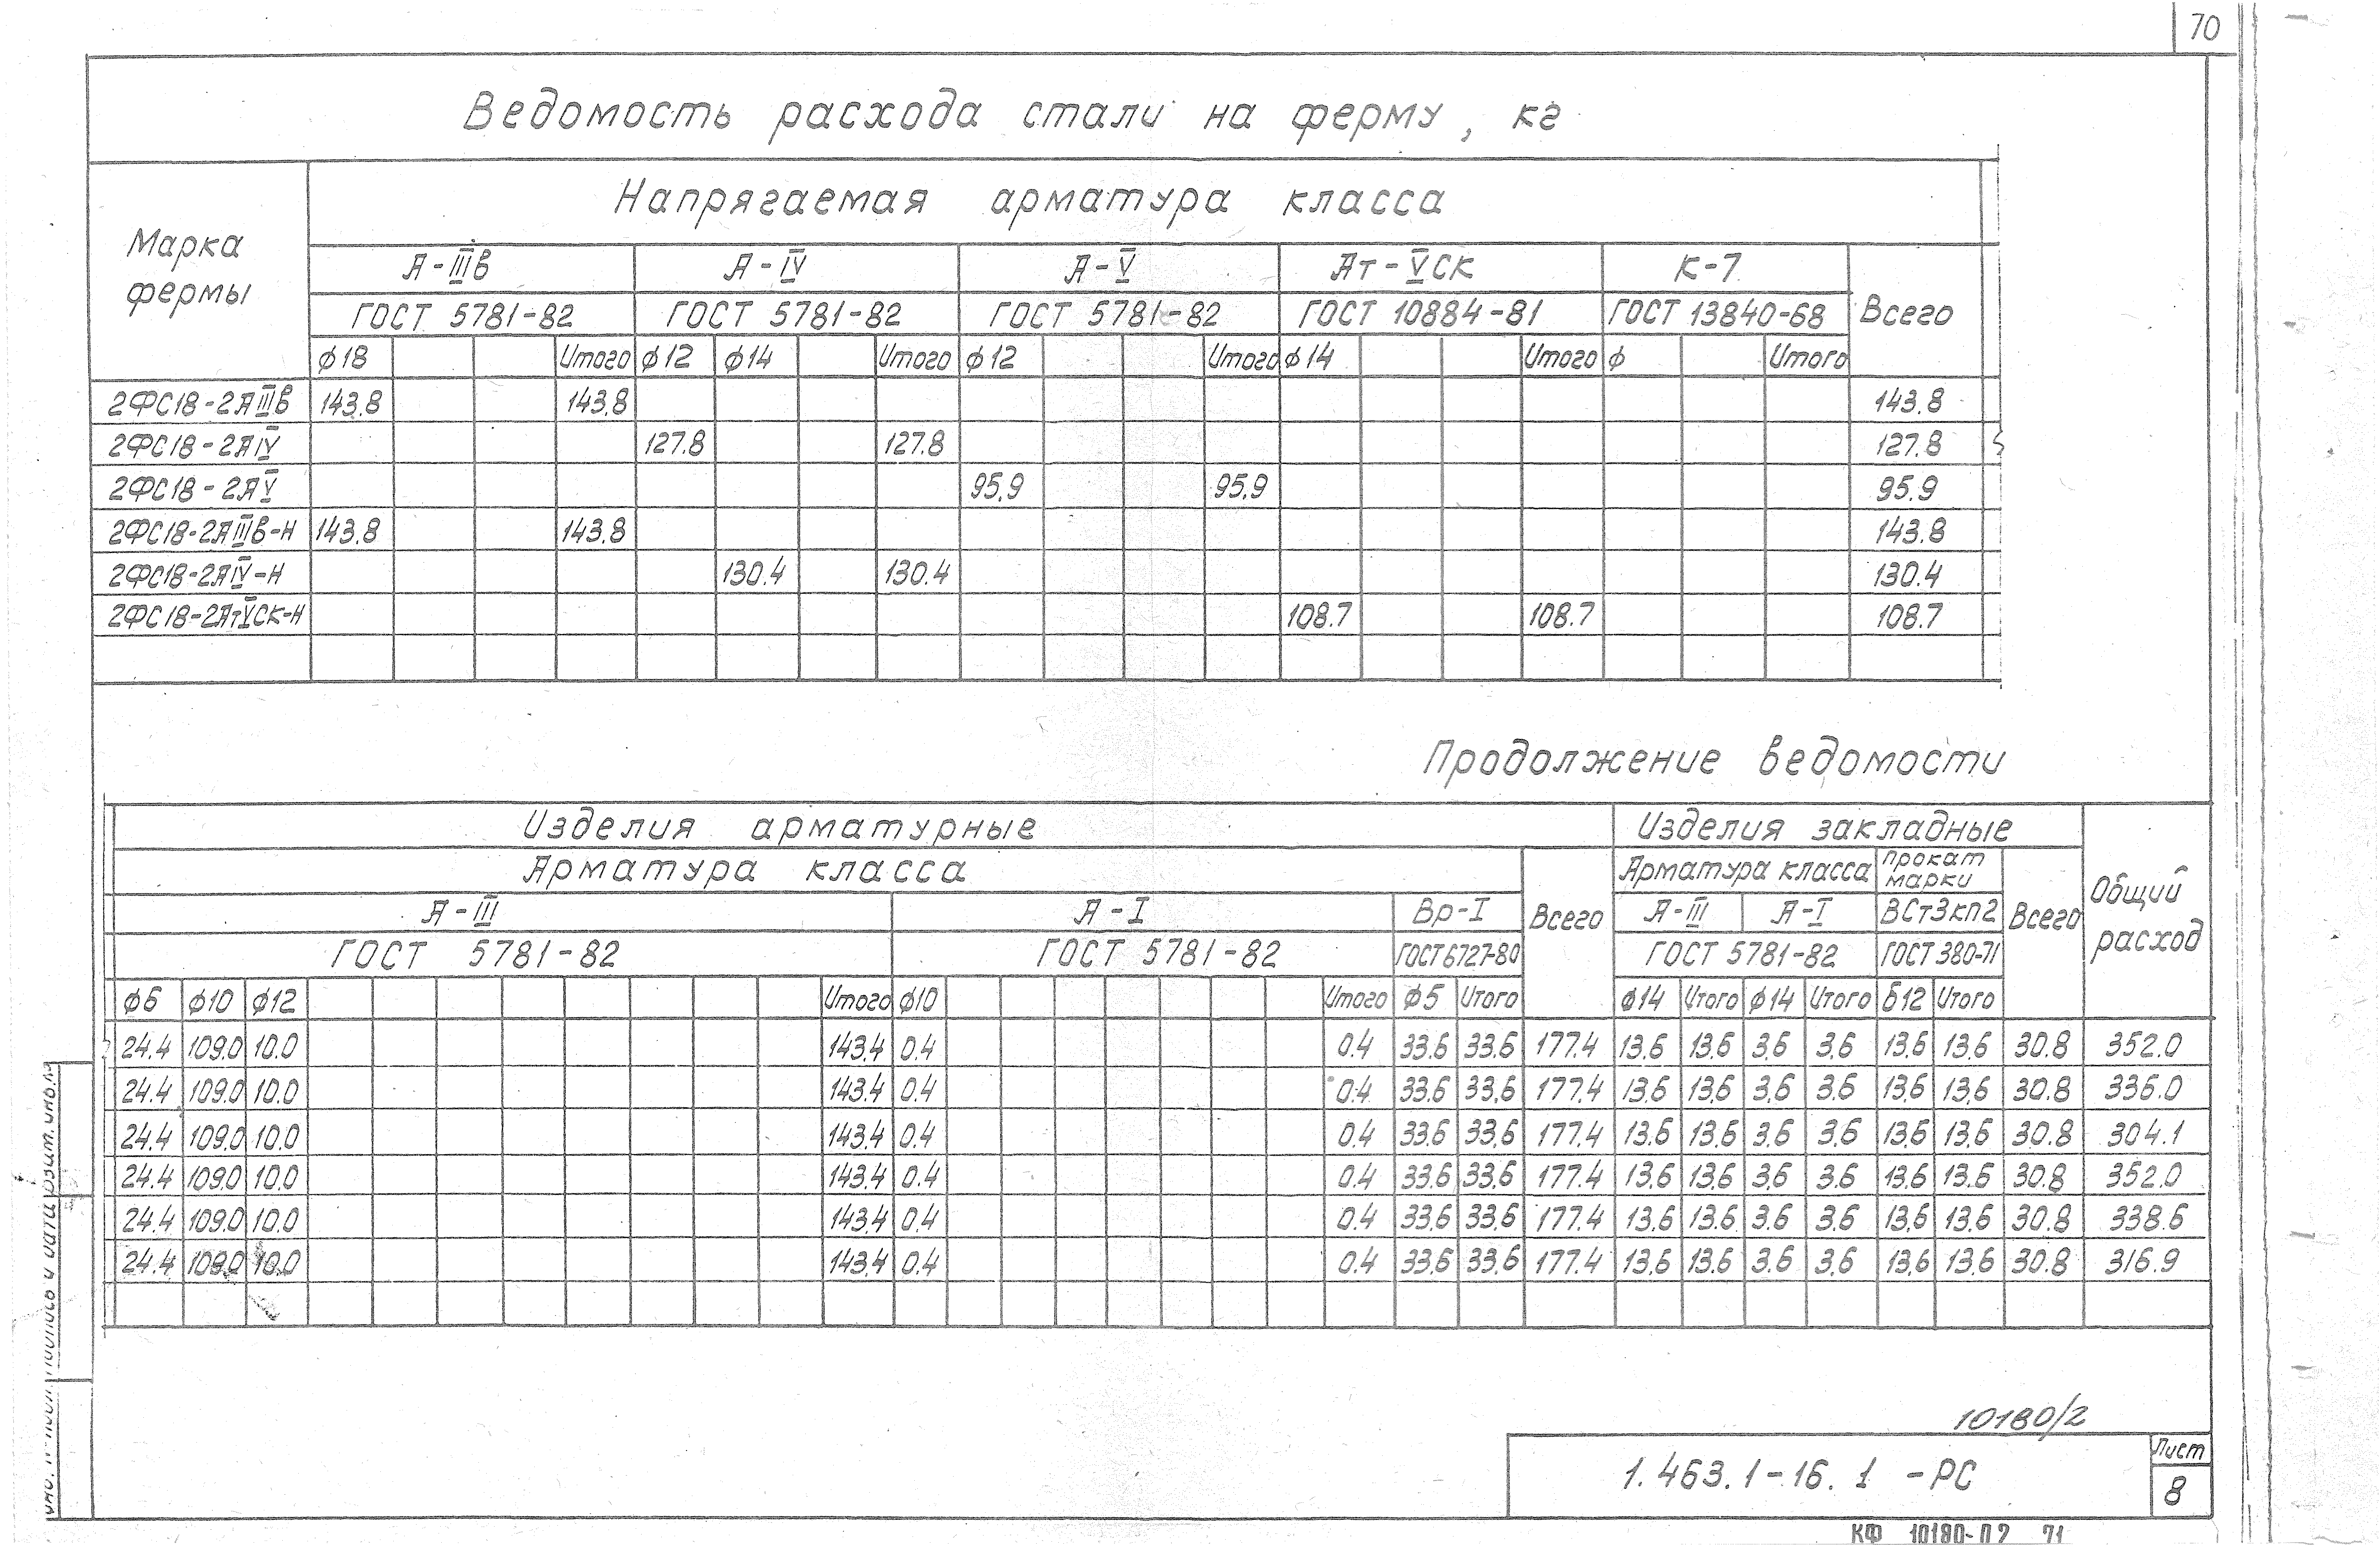 70
Ведомость расхода стали на ферму, кг
Марка фермы
Напрягаемая арматура класса
А-IIIв А-IV А-V Ат-VСК К-7 Всего
ГОСТ 5781-82 ГОСТ 5781-82 ГОСТ 5781-82 ГОСТ 10884-81 ГОСТ 13840-68
ф18 Итого ф12 ф14 Итого ф12 Итого ф14 Итого ф Итого
2ФС18-2АIIIв 143.8 143.8 143.8
2ФС18-2АIV 127.8 127.8 127.8
2ФС18-2АV 95.9 95.9 95.9
2ФС18-2АIIIв-Н 143.8 143.8 143.8
2ФС18-2АIV-Н 130.4 130.4 130.4
2ФС18-2АтVСК-Н 108.7 108.7 108.7
Продолжение ведомости
Изделия арматурные Изделия закладные Общий расход
Арматура класса Всего Арматура класса Прокат марки Всего
А-III А-I Вр-I А-III А-I ВСт3кп2
ГОСТ 5781-82 ГОСТ 5781-82 ГОСТ 6727-80 ГОСТ 5781-82 ГОСТ 380-71
ф6 ф10 ф12 Итого ф10 Итого ф5 Итого ф14 Итого ф14 Итого б12 Итого
24.4 109.0 10.0 143.4 0.4 0.4 33.6 33.6 177.4 13.6 13.6 3.6 3.6 13.6 13.6 30.8 352.0
24.4 109.0 10.0 143.4 0.4 0.4 33.6 33.6 177.4 13.6 13.6 3.6 3.6 13.6 13.6 30.8 336.0
24.4 109.0 10.0 143.4 0.4 0.4 33.6 33.6 177.4 13.6 13.6 3.6 3.6 13.6 13.6 30.8 304.1
24.4 109.0 10.0 143.4 0.4 0.4 33.6 33.6 177.4 13.6 13.6 3.6 3.6 13.6 13.6 30.8 352.0
24.4 109.0 10.0 143.4 0.4 0.4 33.6 33.6 177.4 13.6 13.6 3.6 3.6 13.6 13.6 30.8 338.6
24.4 109.0 10.0 143.4 0.4 0.4 33.6 33.6 177.4 13.6 13.6 3.6 3.6 13.6 13.6 30.8 316.9
10180/2
1.463.1-16.1 -РС
Лист
8
КФ 10180-02 71